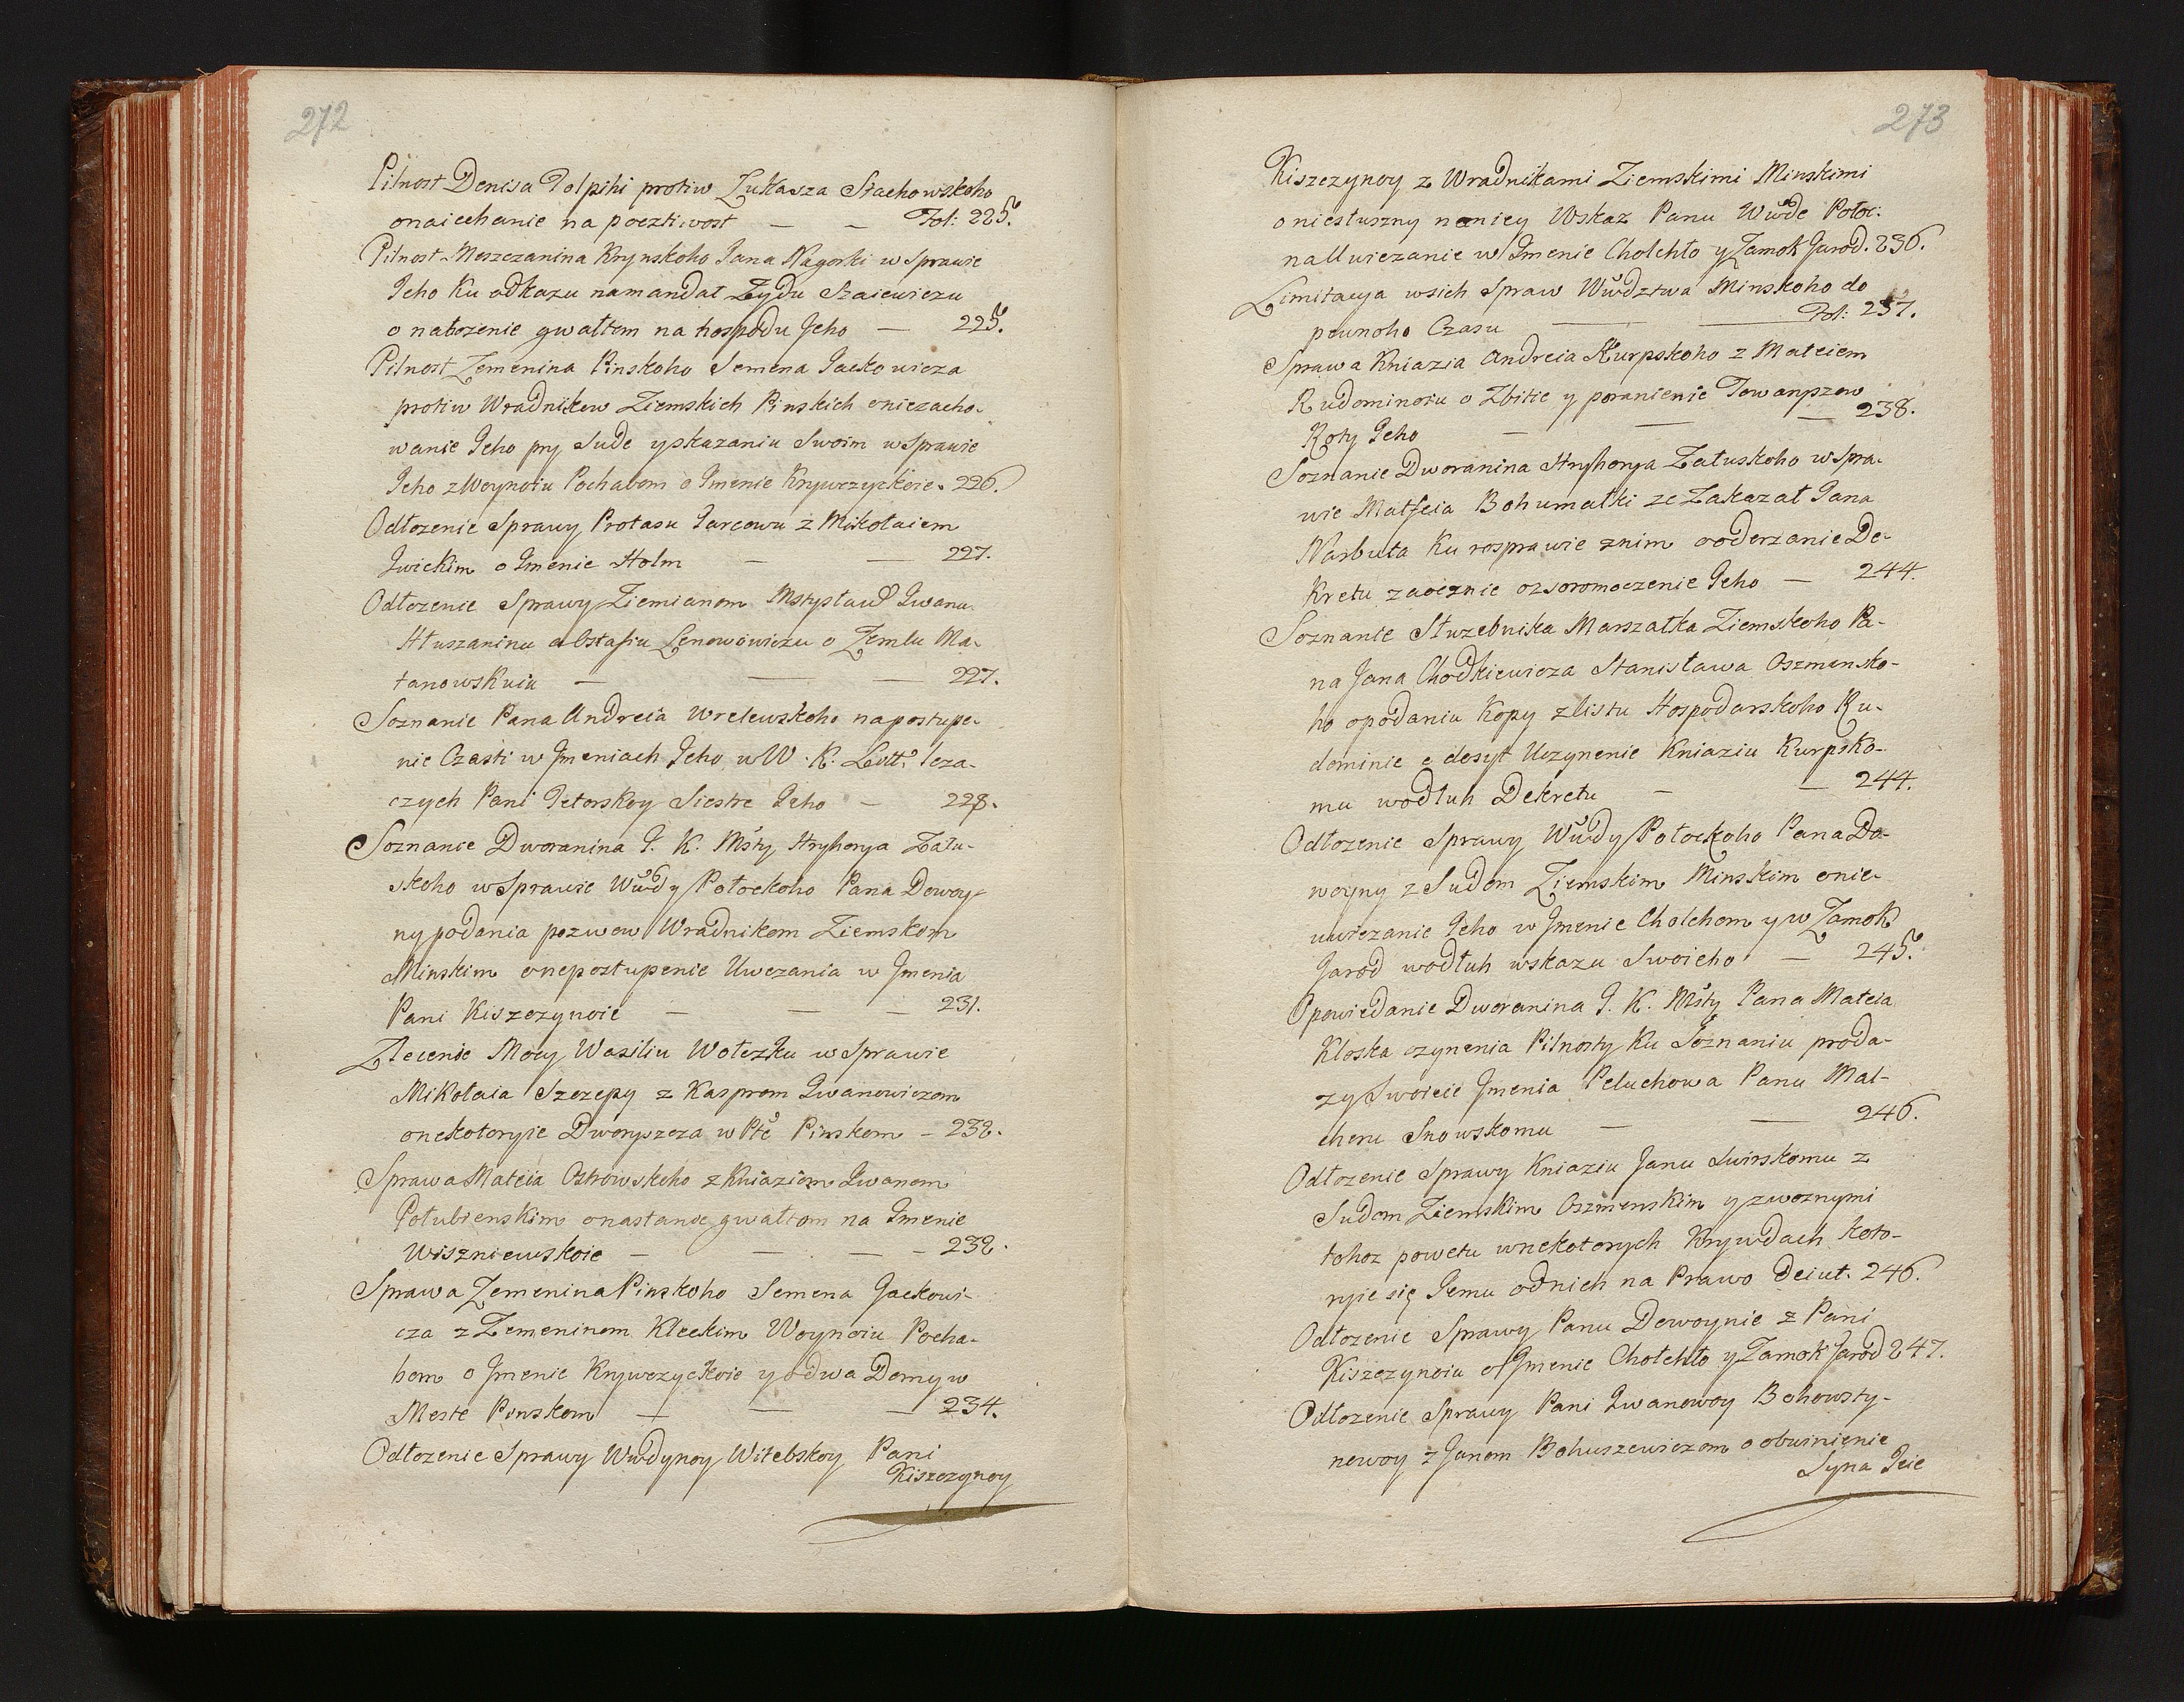 272
Pilnost Denisa Polpihi protiw Łukasza Stachowskoho
onaiechanie na poczliwost — — Fol: 225.
Pilnost Meszczanina Krynskoho Jana Nagorki w Sprawie
Jeho Ku odkazu namandat Żydu Szaiewiczu
o nałozenie gwałtom na hospodu Jeho — 225.
Pilnost Zemenina Pinskoho Semena Jackowicza
protiw Wradnikow Ziemskich Pinskich oniezacho-
wanie Jeho pry Sude yskazaniu Swoim w Sprawie
Jeho z Woynoiu Pochabom o Jmenie Krywczyckoie. 226.
Odłozenie Sprawy Protasu Jarcowu z Mikołaiem
Jwickim o Jmenie Holm — — 227.
Odłozenie Sprawy Ziemianom Mstysław Jwanu
Hłuszaninu a Ostafiu Lenowowiczu o Zemlu Ma-
łanowskuiu — — — 227.
Soznanie Pana Andreia Wrelewskoho napostupe-
nie Czasti w Jmeniach Jeho w W. K. Litt. leza-
czych Pani Jetorskoy Siestre Jeho — 228.
Soznanie Dworanina J. K. Msty Hryhorya Zału-
skoho w Sprawie Wwdy Połockoho Pana Dowoy-
ny podania pozwow Wradnikom Ziemskom
Minskim onepostupenie Uwezania w Jmenia
Pani Kiszczynoie — — — 231.
Zlecenie Mocy Wasiliu Wołczku w Sprawie
Mikołaia Szczepy z Kasprom Jwanowiczom
onekotoryie Dworyszcza w Pte Pinskom — 232.
Sprawa Mateia Ostrowskoho z Kniaziom Jwanom
Połubienskim onastanie gwałtom na Jmenie
Wiszniewskoie — — — — 232.
Sprawa Zemenina Pinskoho Semena Jackowi-
cza z Zemeninom Kleckim Woynoiu Pocha-
bom o Jmenie Krywczyckoie y o dwa Domy w
Meste Pinskom — — — 234.
Odłozenie Sprawy Wwdynoy Witebskoy Pani
Kiszczynoy
273
Kiszczynoy z Wradnikami Ziemskimi Minskimi
o niesłuszny naniey Wskaz Panu Wwde Połoc.
naUwiezanie w Jmenie Cholchło y Zamok Jarod. 236.
Limitacya wsich Spraw Wwdztwa Minskoho do
pewnoho Czasu — — Fol: 237.
Sprawa Kniazia Andreia Kurpskoho z Mateiem
Rudominoiu o Zbitie y poranienie Towarpzow
Roty Jeho — — — 238.
Soznanie Dworanina Hryhorya Załuskoho w Spra-
wie Matfeia Bohumatki ze Zakazał Jana
Narbuta Ku rosprawie znim o oderzanie De-
Kretu zaocznie ozsoromoczenie Jeho — 244.
Soznanie Słuzebnika Marszałka Ziemskoho Pa-
na Jana Chodkiewicza Stanisława Oszmensko-
ho opodaniu Kopy z listu Hospodarskoho Ru-
dominie o dosyt Uczynenie Kniaziu Kurpsko-
mu wodłuh Dekretu — — 244.
Odłozenie Sprawy Wwdy Połockoho Pana Do-
woyny z Sudom Ziemskim Minskim onie-
uwiezanie Jeho w Jmenie Cholchom y w Zamok
Jarod wodłuh wskazu Swoieho — 245.
Opowiedanie Dworanina J. K. Msty Pana Mateia
Kloska czynenia Pilnosty Ku Soznaniu proda-
zy Swoieie Jmenia Peluchowa Panu Mal-
cheru Snowskomu — — 246.
Odłozenie Sprawy Kniaziu Janu Swirskomu z
Sudom Ziemskim Oszmenskim y zwoznymi
tohoz powetu wnekotorych Krywdach koto-
ryie się Jemu odnich na Prawo Deiut. 246.
Odłozenie Sprawy Panu Dowoynie z Pani
Kiszczynoiu o Jmenie Chołchło y Zamok Jarod 247.
Odłozenie Sprawy Pani Jwanowoy Bohowsty-
nowoy z Janom Bohuszewiczom o obwinienie
Syna Jeie